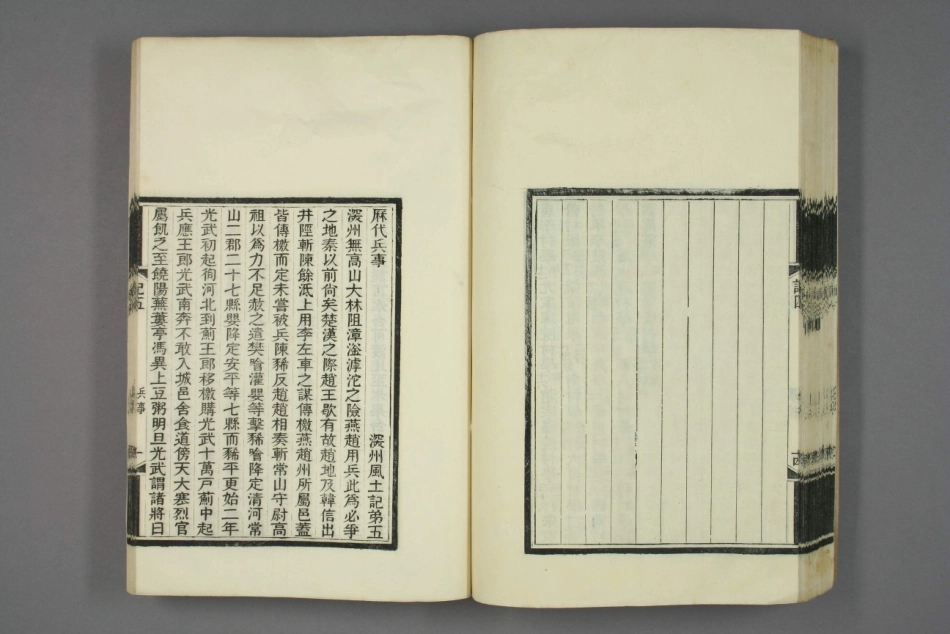 厤代兵事　深州風土記第五
深州無高山大林阻漳滏滹沱之險燕趙用兵此為必爭
之地秦以前尙矣楚漢之際趙王歇有故趙地及韓信出
井陘斬陳餘泜上用李左車之謀傳檄燕趙州所屬邑蓋
皆傳檄而定未嘗被兵陳豨反趙趙相奏斬常山守尉高
祖以為力不足赦之遣樊噲灌嬰等擊豨噲降定清河常
山二郡二十七縣嬰降定安平等七縣而豨平更始二年
光武初起徇河北到薊王郎移檄購光武十萬戶薊中起
兵應王郎光武南奔不敢入城邑舍食道傍天大寒烈官
屬飢乏至饒陽蕪蔞亭馮異上豆粥明旦光武謂諸將曰
記五
兵事
一